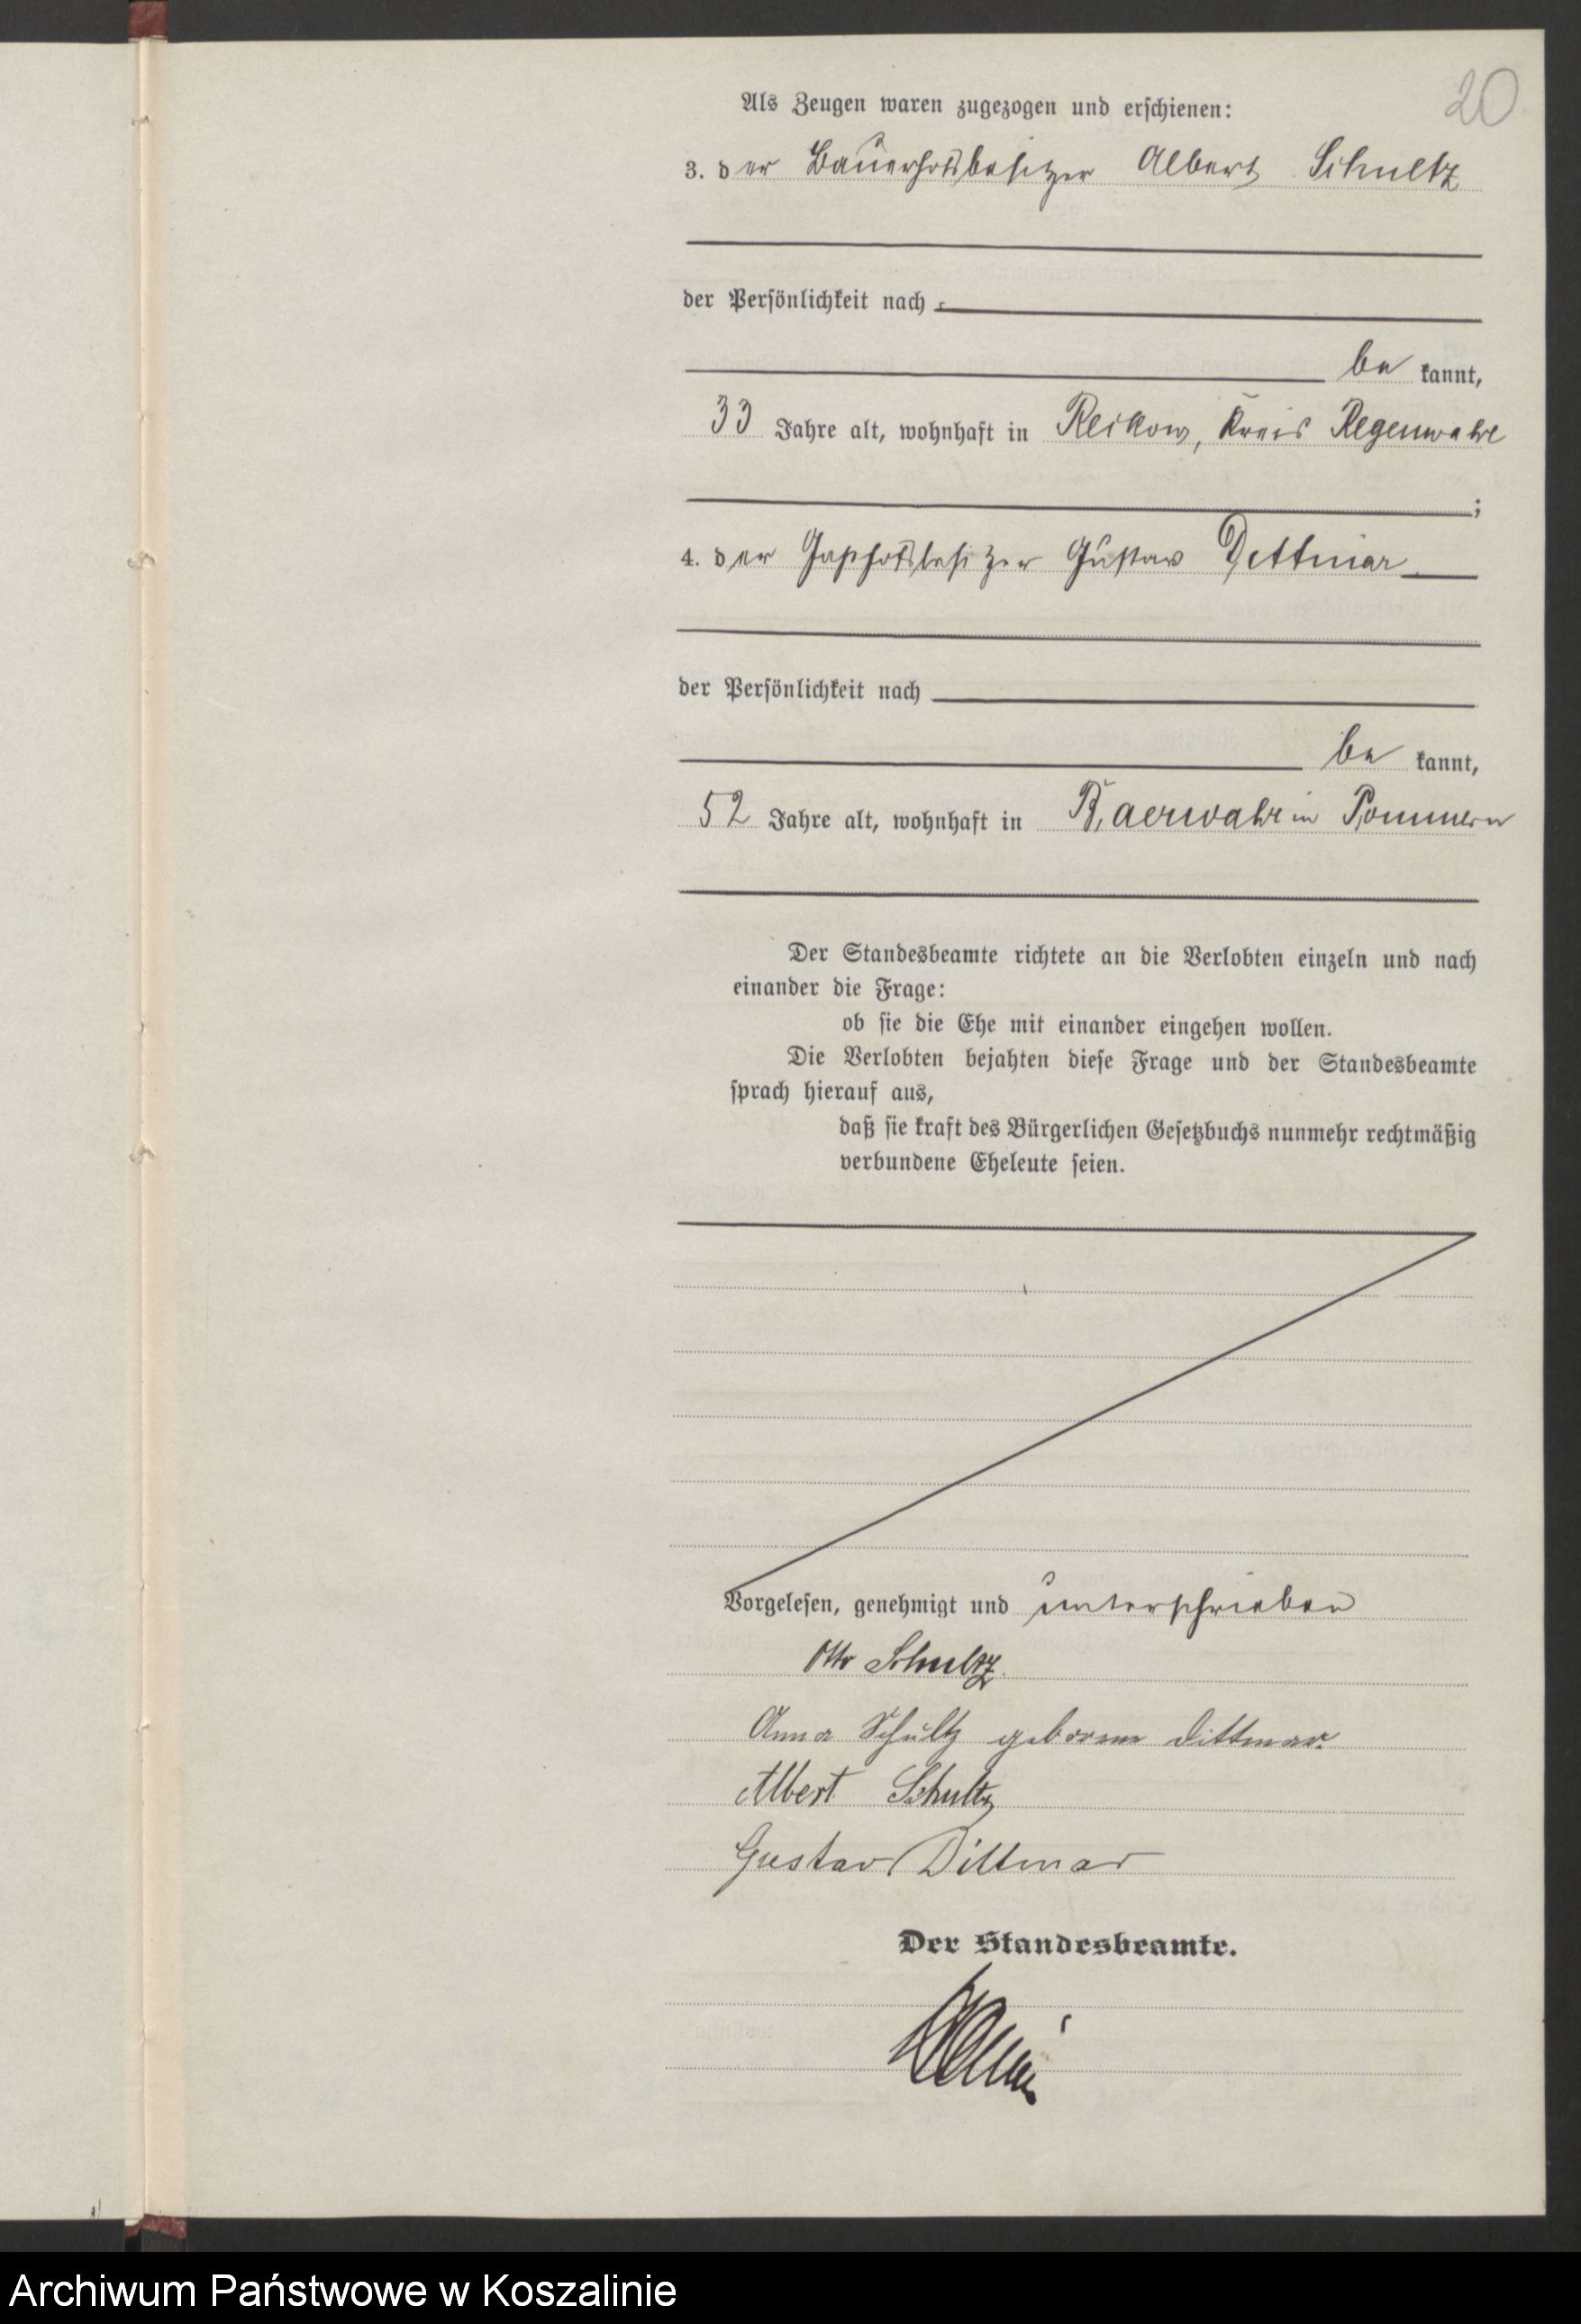 20
Als Zeugen waren zugezogen und erschienen:
3. der Bauerhofsbesitzer Albert Schultz
der Persönlichkeit nach
be kannt,
33 Jahre alt, wohnhaft in Reikow, Kreis Regenwalde
;
4. der Gasthofsbesitzer Gustav Dittmar
der Persönlichkeit nach
be kannt,
52 Jahre alt, wohnhaft in Baerwalde in Pommern
Der Standesbeamte richtete an die Verlobten einzeln und nach
einander die Frage:
ob sie die Ehe mit einander eingehen wollen.
Die Verlobten bejahten diese Frage und der Standesbeamte
sprach hierauf aus,
daß sie kraft des Bürgerlichen Gesetzbuchs nunmehr rechtmäßig
verbundene Eheleute seien.
Vorgelesen, genehmigt und unterschrieben
Otto Schultz.
Anna Schultz geborene Dittmar.
Albert Schultz
Gustav Dittmar
Der Standesbeamte.
Archiwum Państwowe w Koszalinie